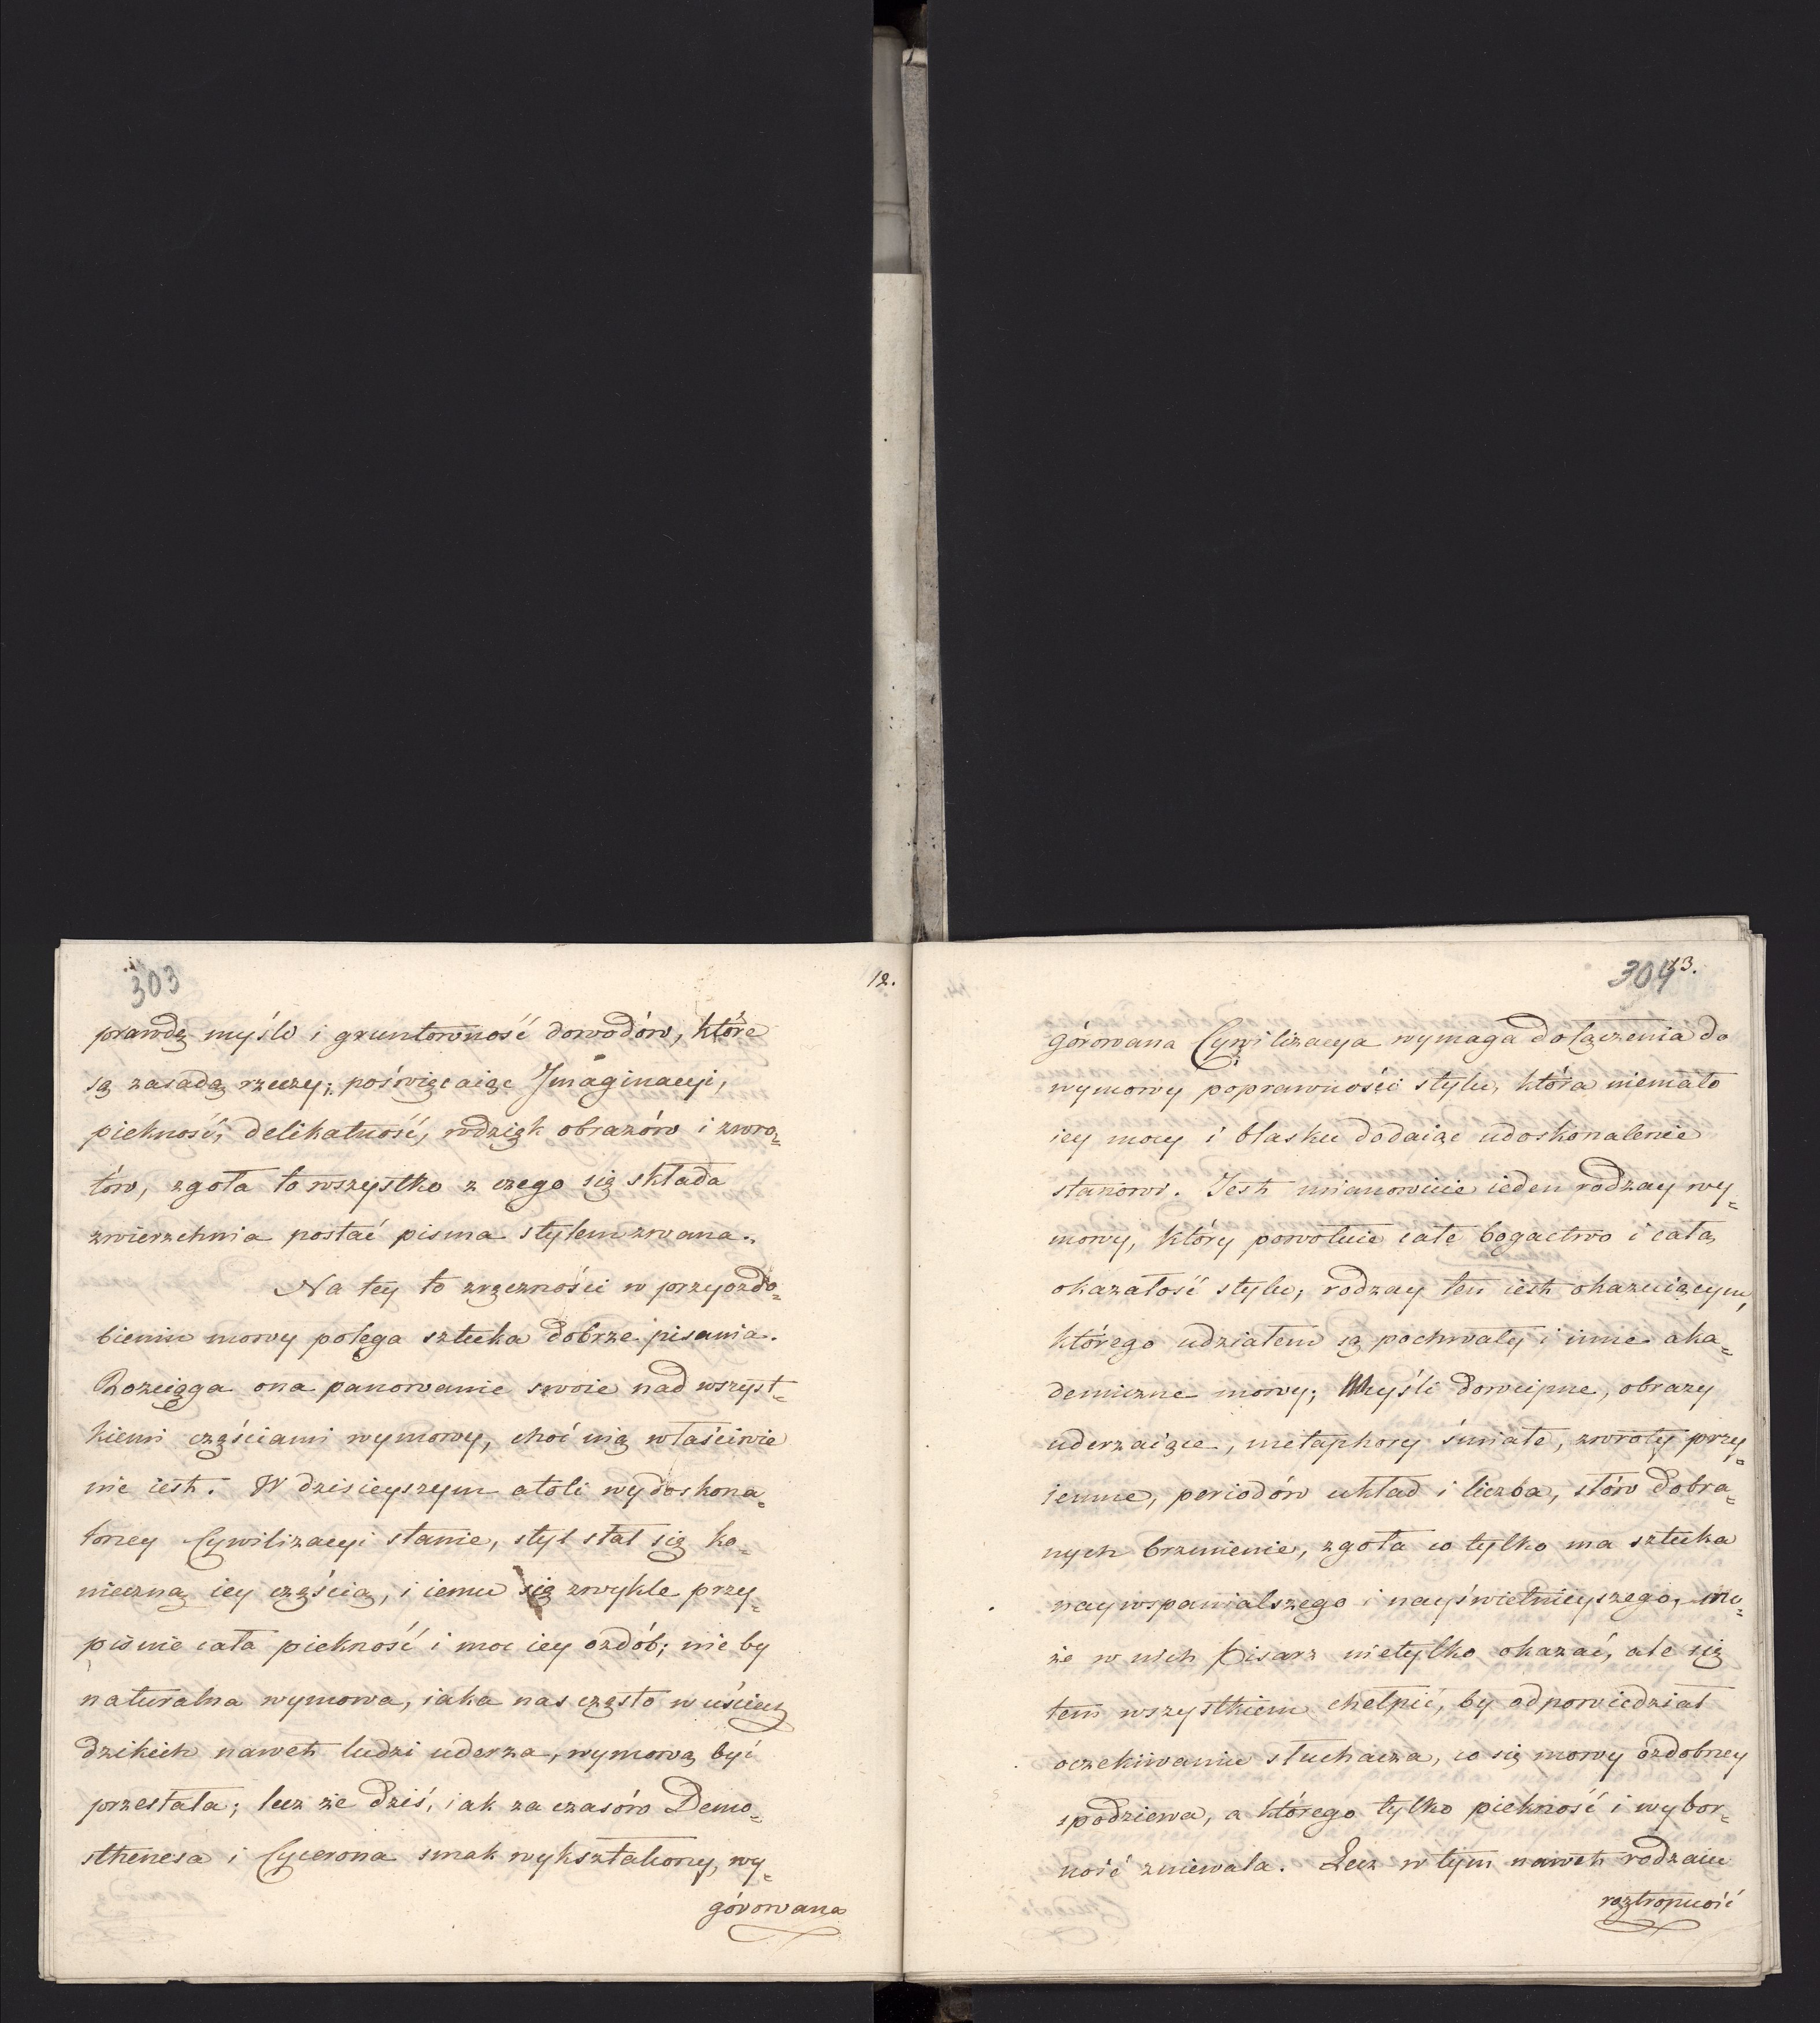 303
12.
prawdę myśli i gruntowność dowodów, które
są zasadą rzeczy; poświęcaiąc Imaginacyi,
piekność, delikatność, wdzięk obrazów i zwro„
tów, zgoła to wszystko z czego się składa
zwierzchnia postać pisma stylem zwana.
Na tey to zręczności w przyozdo„
bieniu mowy polega sztuka dobrze pisania.
Rozciąga ona panowanie swoie nad wszyst„
kiemi częściami wymowy, choć nią właściwie
nie iest. W dzisieyszym atoli wydoskona„
loney Cywilizacyi stanie, styl stał się ko„
nieczną iey częścią, i iemu się zwykle przy„
pisuie cała piekność i moc iey ozdób; nie by
naturalna wymowa, iaka nas często w uściech
dzikich nawet ludzi uderza, wymową być
przestała; lecz że dziś, iak za czasów Demo„
sthenesa i Cycerona smak wykształcony, wy„
górowana
304
13.
górowana Cywilizacya wymaga dołączenia do
wymowy poprawności stylu, która niemało
iey mocy i blasku dodaiąc udoskonalenie
stanowi. Jest mianowicie ieden rodzay wy„
mowy, który powołuie całe bogactwo i całą
okazałość stylu, rodzay ten iest okazuiącym,
którego udziałem są pochwały i inne aka„
demiczne mowy; Myśli dowcipne, obrazy
uderzaiące, metaphory śmiałe, zwroty przy„
iemne, periodów układ i liczba, słów dobra„
nych brzmienie, zgoła co tylko ma sztuka
naywspanialszego i nayświetnieyszego, mo„
że w nich Pisarz nietylko okazać, ale się
tem wszystkiem chełpić, by odpowiedział
oczekiwaniu słuchacza, co się mowy ozdobney
spodziewa, a którego tylko piekność i wybor„
ność zniewala. Lecz w tym nawet rodzaiu
roztropność